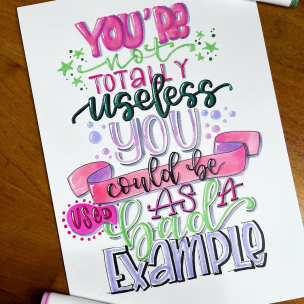 YOU'RE
not
TOTALLY
useless
YOU
could be
USED AS A
bad
EXAMPLE